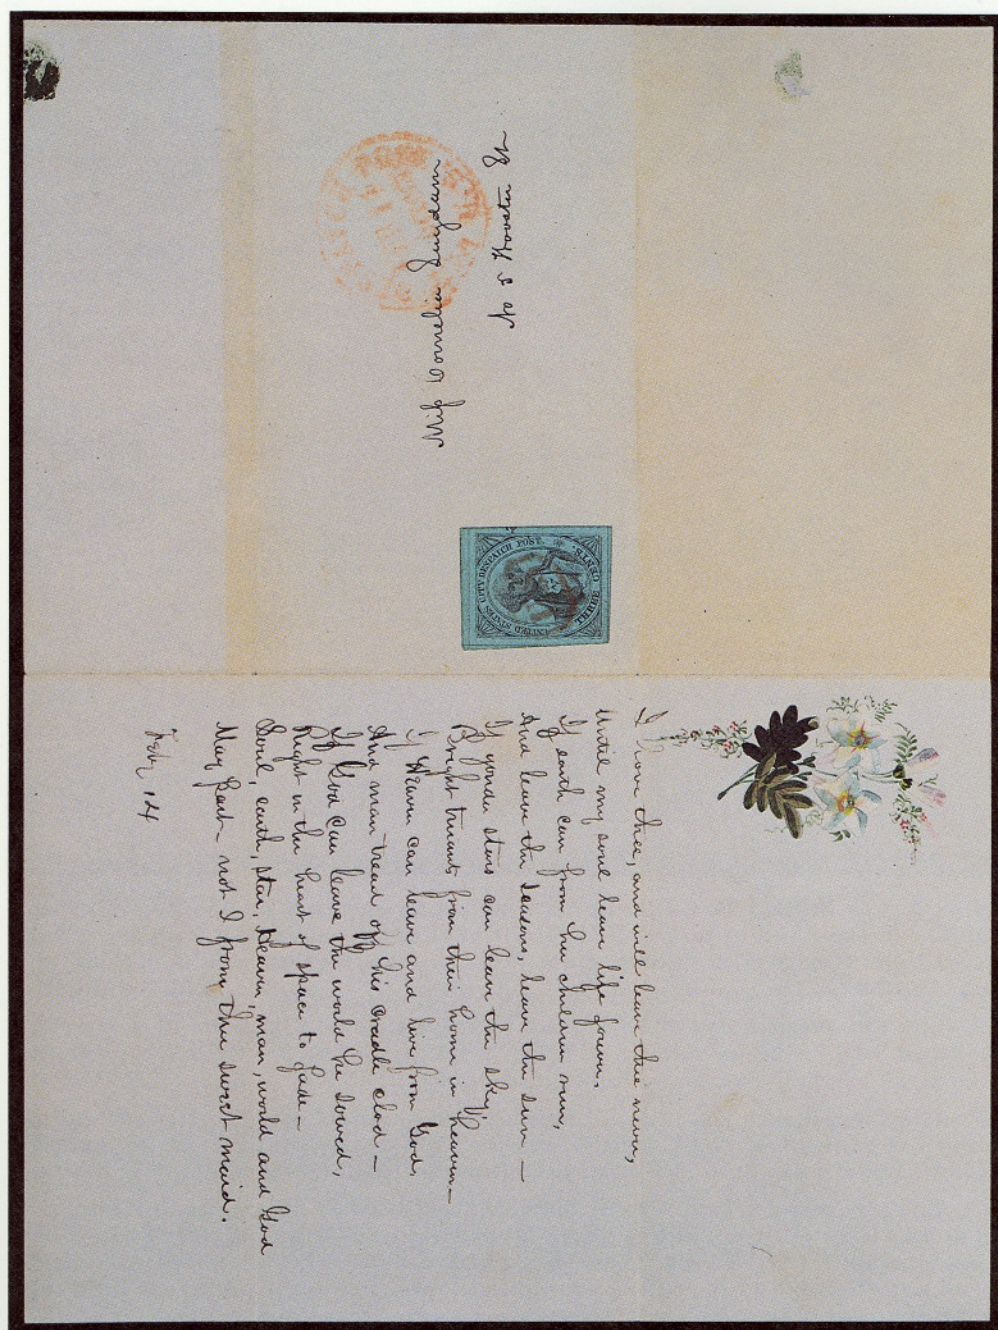 Miss Cornelia Suydam
No 5 Wooster St
UNITED STATES CITY DESPATCH POST.
THREE CENTS.
I love thee, and will leave thee never,
Until my soul leave life forever.
If earth can from her children run,
And leave the seasons, leave the sun —
If yonder stars can leave the sky,
Bright truants from their home in heaven —
If Heaven can leave and live from God,
And man tread off his cradle clod —
If God can leave the world he sowed,
Right in the heart of space to fade —
Soul, earth, star, Heaven, man, world and God
May part — not I from thee sweet maid.
Feby 14